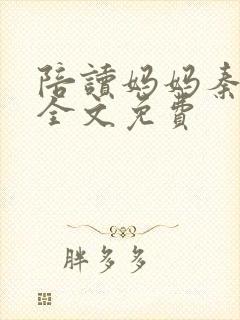 陪讀妈妈秦
全文免費
胖多多